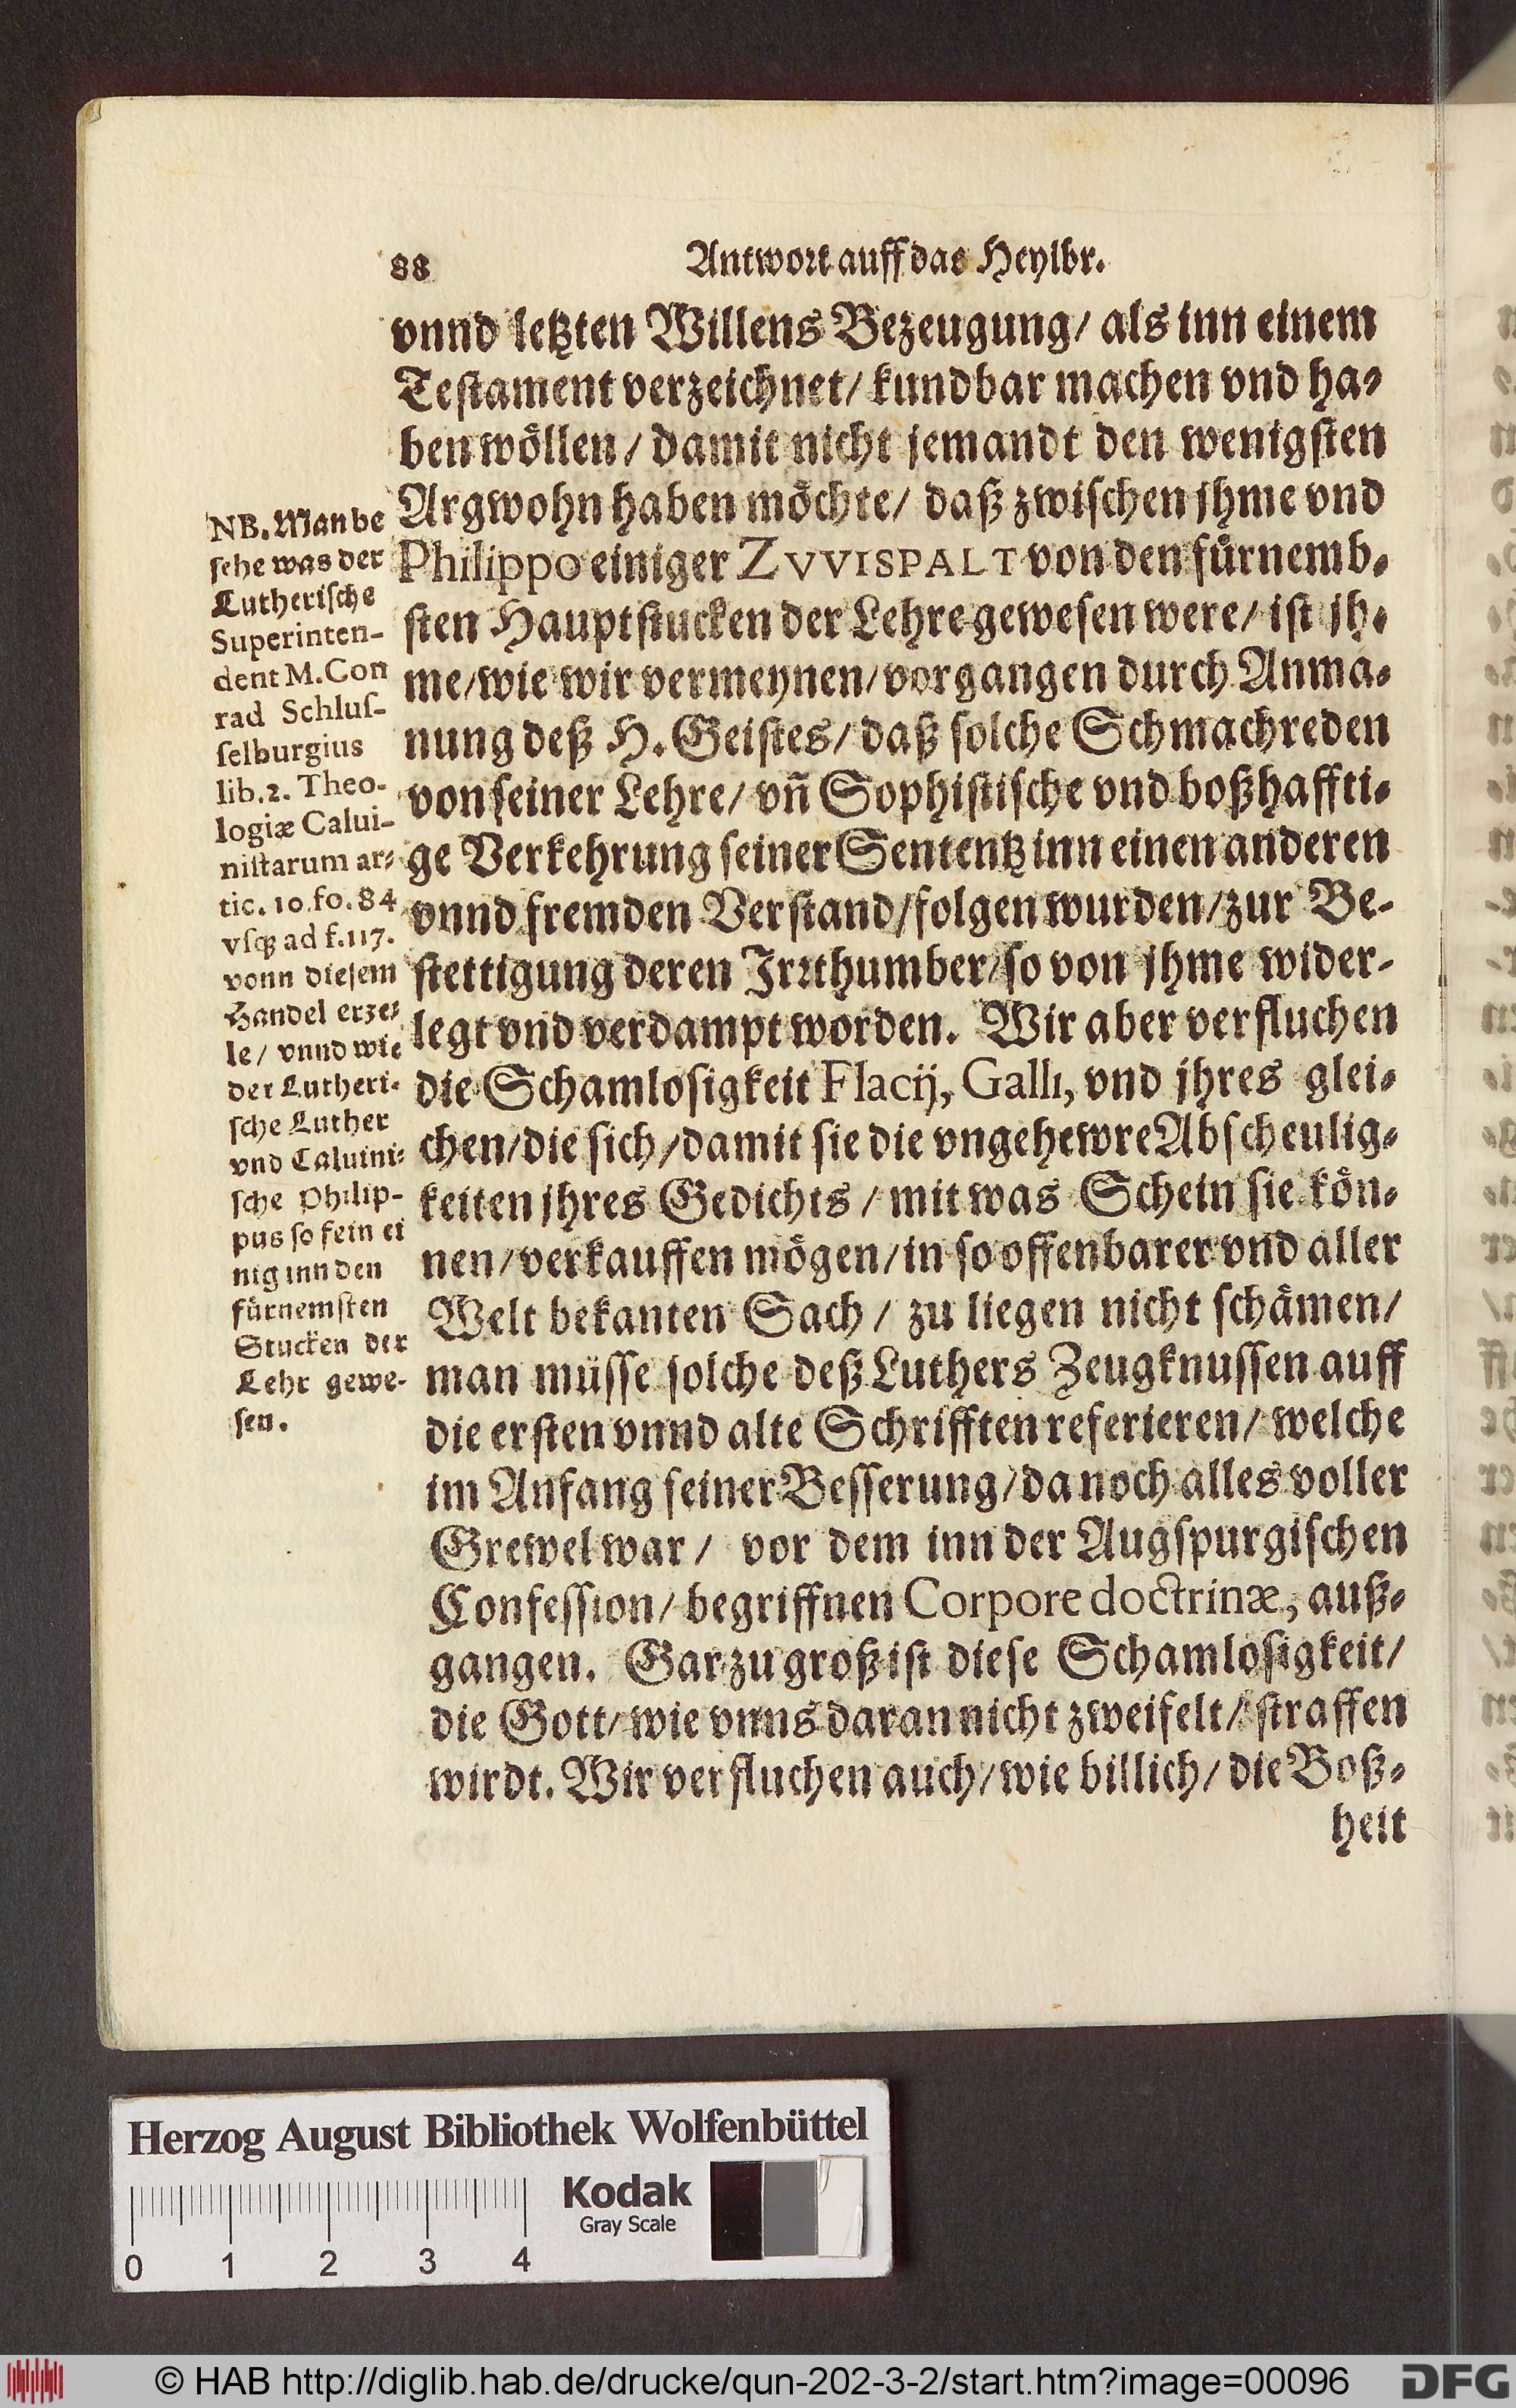 88 Antwort auff das Heylbr.
vnnd letzten Willens Bezeugung/ als inn einem
Testament verzeichnet/ kundbar machen vnd ha-
ben wöllen/ damit nicht jemandt den wenigsten
Argwohn haben möchte/ daß zwischen jhme vnd
Philippo einiger ZVVISPALT von den fürnemb-
sten Hauptstucken der Lehre gewesen were/ ist jh-
me/ wie wir vermeynen/ vorgangen durch Anma-
nung deß H. Geistes/ daß solche Schmachreden
von seiner Lehre/ vñ Sophistische vnd boßhaffti-
ge Verkehrung seiner Sententz inn einen anderen
vnnd fremden Verstand/ folgen wurden/ zur Be-
stettigung deren Irrthumber/ so von jhme wider-
legt vnd verdampt worden. Wir aber verfluchen
die Schamlosigkeit Flacij, Galli, vnd jhres glei-
chen/ die sich/ damit sie die vngehewre Abscheulig-
keiten jhres Gedichts/ mit was Schein sie kön-
nen/ verkauffen mögen/ in so offenbarer vnd aller
Welt bekanten Sach/ zu liegen nicht schämen/
man müsse solche deß Luthers Zeugknussen auff
die ersten vnnd alte Schrifften referieren/ welche
im Anfang seiner Besserung/ da noch alles voller
Grewel war/ vor dem inn der Augspurgischen
Confession/ begriffnen Corpore doctrinæ, auß-
gangen. Gar zu groß ist diese Schamlosigkeit/
die Gott/ wie vnns daran nicht zweifelt/ straffen
wirdt. Wir verfluchen auch/ wie billich/ die Boß-
heit
NB. Man be
sehe was der
Lutherische
Superinten-
dent M. Con
rad Schlus-
selburgius
lib. 2. Theo-
logiæ Calui-
nistarum ar-
tic. 10. fo. 84
vsq; ad f. 117.
vonn diesem
Handel erze-
le/ vnnd wie
der Lutheri-
sche Luther
vnd Caluini-
sche Philip-
pus so fein ei
nig inn den
fürnemsten
Stucken der
Lehr gewe-
sen.
Herzog August Bibliothek Wolfenbüttel
Kodak
Gray Scale
0 1 2 3 4
© HAB http://diglib.hab.de/drucke/qun-202-3-2/start.htm?image=00096
DFG